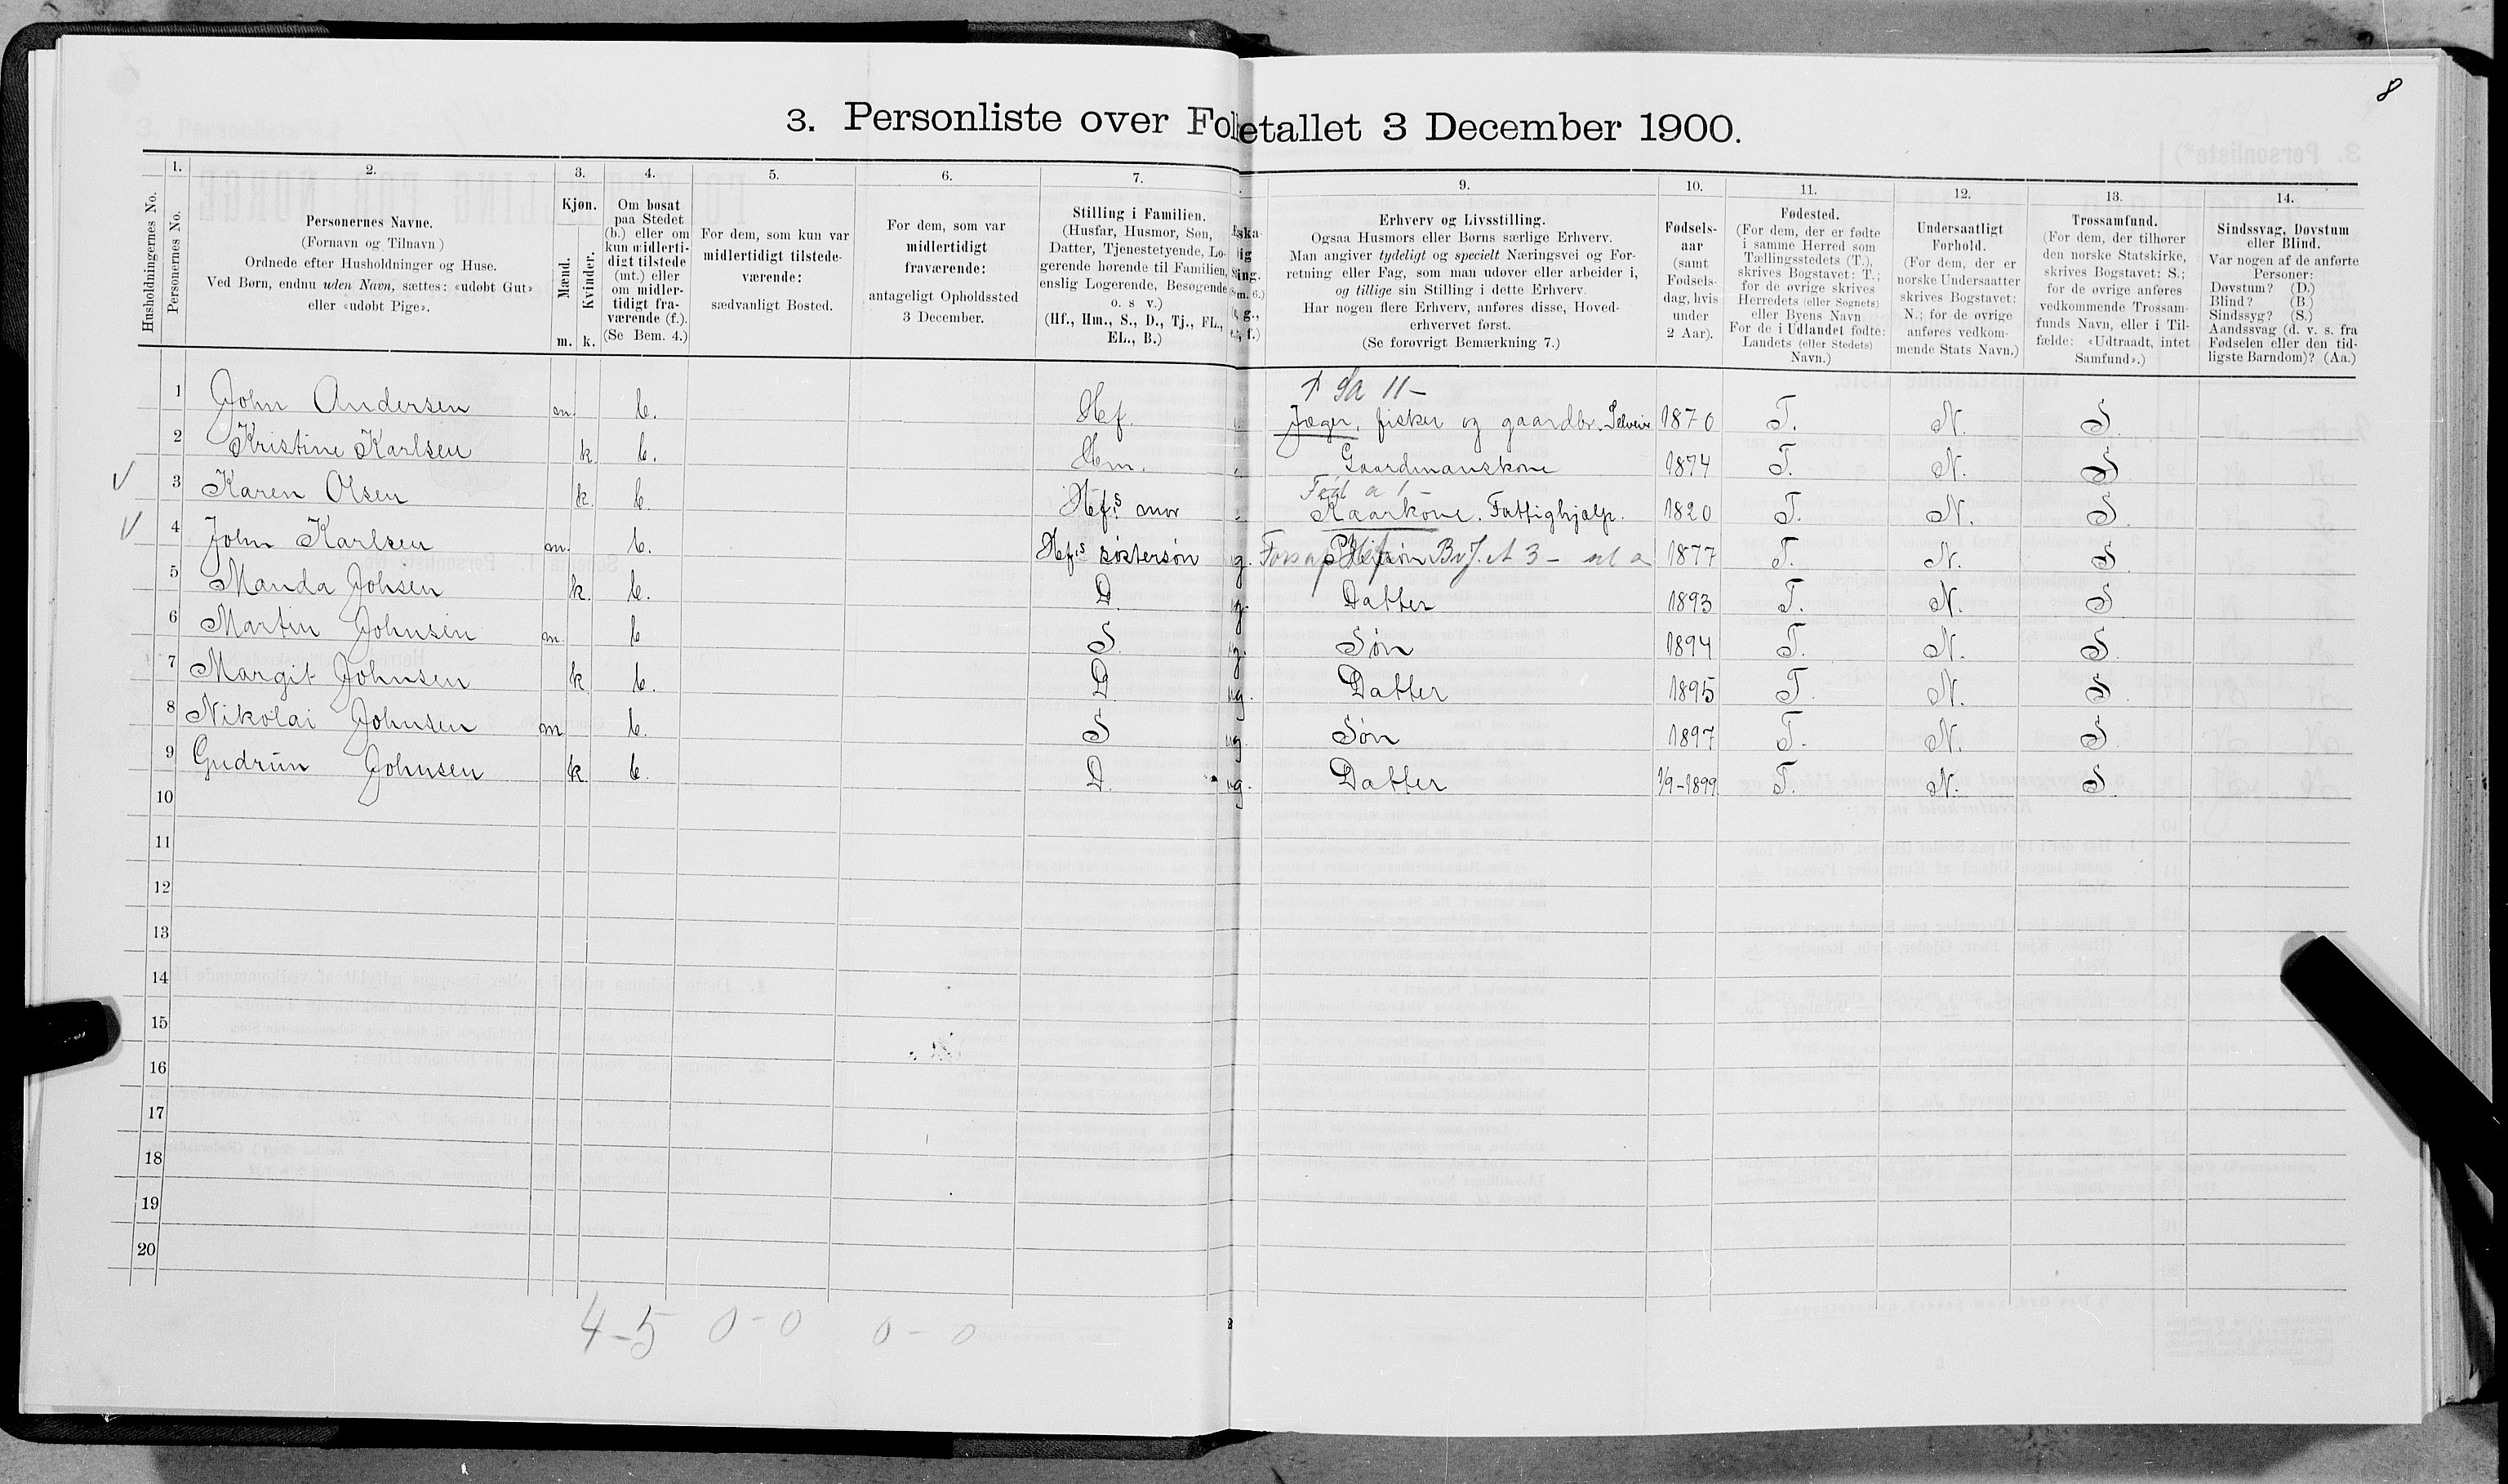 8
3. Personliste over Folketallet 3 December 1900.
Husholdningernes No.
1.
Personernes No.
2.
Personernes Navne.
(Fornavn og Tilnavn)
Ordnede efter Husholdninger og Huse.
Ved Børn, endnu uden Navn, sættes: «udøbt Gut»
eller «udøbt Pige».
3.
Kjøn.
Mænd.
Kvinder.
m. k.
4.
Om bosat
paa Stedet
(b.) eller om
kun midlerti-
digt tilstede
(mt.) eller
om midler-
tidigt fra-
værende (f.).
(Se Bem. 4.)
5.
For dem, som kun var
midlertidigt tilstede-
værende:
sædvanligt Bosted.
6.
For dem, som var
midlertidigt
fraværende:
antageligt Opholdssted
3 December.
7.
Stilling i Familien.
(Husfar, Husmor, Søn,
Datter, Tjenestetyende, Lo-
gerende hørende til Familien,
enslig Logerende, Besøgende
o. s v.)
(Hf., Hm., S., D., Tj., FL.,
EL., B.)
9.
Erhverv og Livsstilling.
Ogsaa Husmors eller Børns særlige Erhverv.
Man angiver tydeligt og specielt Næringsvei og For-
retning eller Fag, som man udøver eller arbeider i,
og tillige sin Stilling i dette Erhverv.
Har nogen flere Erhverv, anføres disse, Hoved-
erhvervet først.
(Se forøvrigt Bemærkning 7.)
10.
Fødsels-
aar
(samt
Fødsels-
dag, hvis
under
2 Aar).
11.
Fødested.
(For dem, der er fødte
i samme Herred som
Tællingsstedets (T.),
skrives Bogstavet: T.;
for de øvrige skrives
Herredets (eller Sognets)
eller Byens Navn
For de i Udlandet fødte:
Landets (eller Stedets)
Navn.)
12.
Undersaatligt
Forhold.
(For dem, der er
norske Undersaatter
skrives Bogstavet:
N.; for de øvrige
anføres vedkom-
mende Stats Navn.)
13.
Trossamfund.
(For dem, der tilhører
den norske Statskirke,
skrives Bogstavet: S.;
for de øvrige anføres
vedkommende Trossam-
funds Navn, eller i Til-
fælde: «Udtraadt, intet
Samfund».)
14.
Sindssvag, Døvstum
eller Blind.
Var nogen af de anførte
Personer:
Døvstum? (D.)
Blind? (B.)
Sindssyg? (S.)
Aandssvag (d. v. s. fra
Fødselen eller den tid-
ligste Barndom)? (Aa.)
1 John Andersen m. b. Hf. Jæger, fisker og gaardbr. Selveier 1870 T. N. S.
2 Kristine Karlsen k. b. Hm. Gaardmanskone 1874 T. N. S
3 Karen Olsen k. b. Hf.s mor Kaarkone. Fattighjælp. 1820 T. N. S.
4 John Karlsen m. b. Hf.s søstersøn g. 1877 T. N. S
5 Manda Johsen k. b. D. g. Datter 1893 T. N. S
6 Martin Johnsen m. b S. g. Søn 1894 T. N. S.
7 Margit Johnsen k b. D. ug. Datter 1895 T. N. S
8 Nikolai Johnsen m b. S ug. Søn 1897 T. N. S.
9 Gudrun Johnsen k. b. D. ug. Datter 1/9-1899 T. N. S
10
11
12
13
14
15
16
17
18
19
20
4-5 0-0 0-0